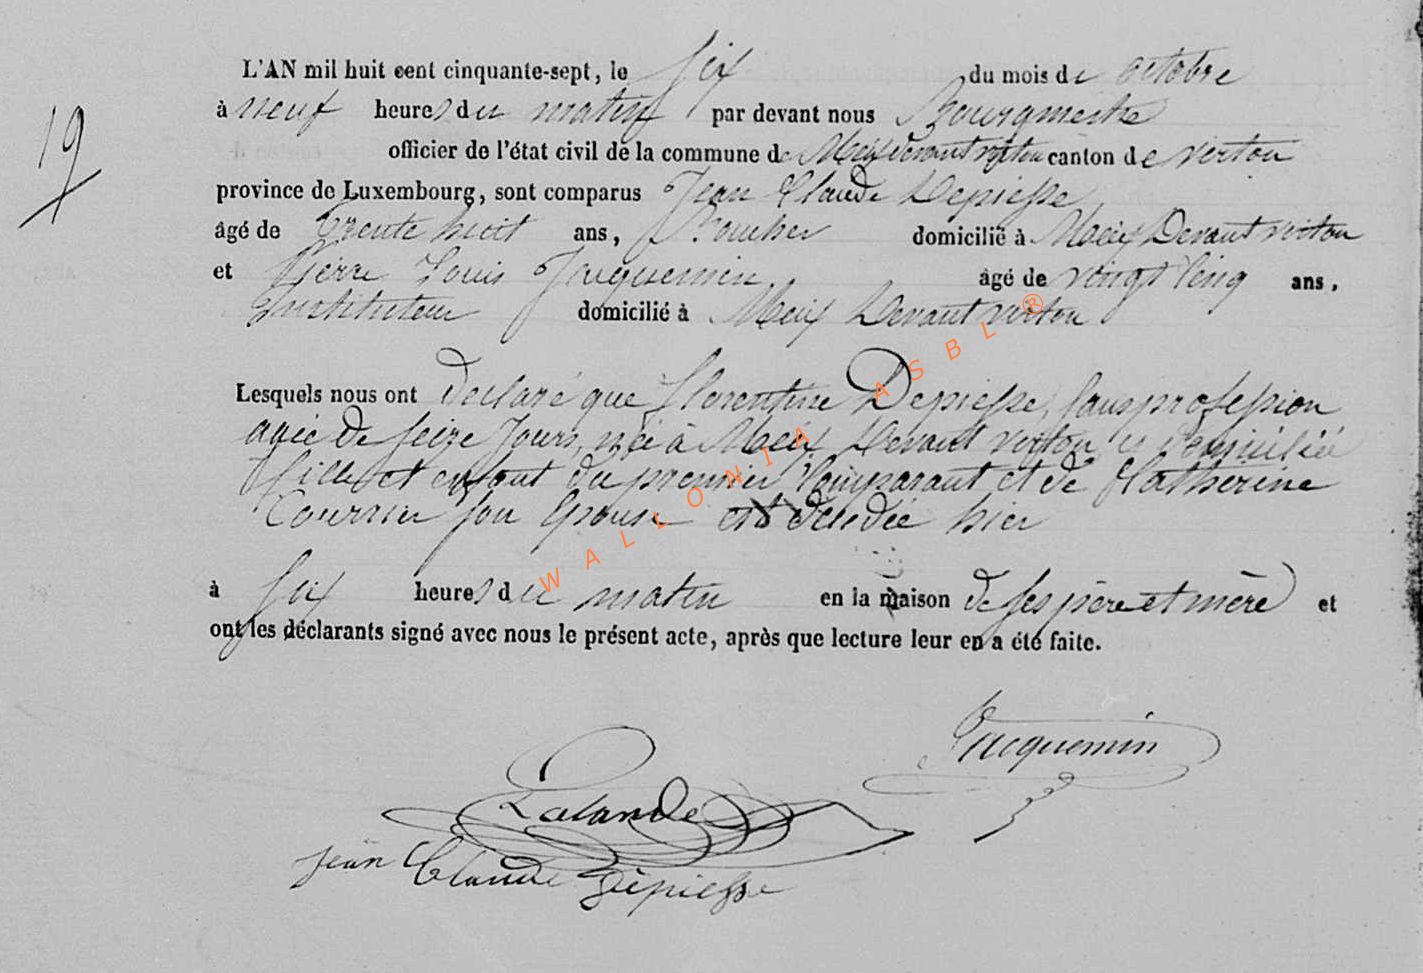 19
L'AN mil huit cent cinquante-sept, le Six du mois de octobre
à neuf heures du matin par devant nous Bourgmestre
officier de l'état civil de la commune de Meix devant virton canton de virton
province de Luxembourg, sont comparus Jean Claude Depiesse
âgé de Trente huit ans, domicilié à Meix Devant virton
et Pierre Louis Jacquemin âgé de vingt Cinq ans.
Instituteur domicilié à Meix Devant virton
Lesquels nous ont déclaré que Florentine Depiesse, Sans profession
agée de Seize Jours, née à Meix Devant virton y domiciliée
fille et enfant du premier Comparant et de Catherine
Courrier Son Epouse est décédée hier
à Six heures du matin en la maison de Ses père et mère et
ont les déclarants signé avec nous le présent acte, après que lecture leur en a été faite.
Jacquemin
Lalande
Jean Claude Dépiesse
WALLONIA ASBL ®